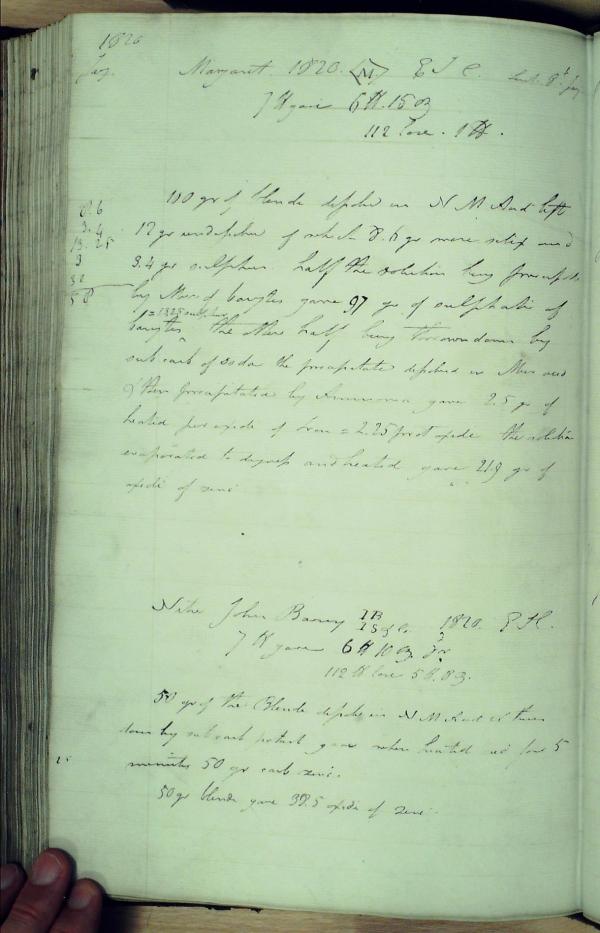 1820
Jany
Margaret 1820. <N> E I C.
7 ℔ gave 6 ℔. 15 oz
112 lose. 1 ℔.
100 gr of blende dissolved in N M Acid left
8.6
12 gr undissolved of which 8.6 gr were silex and
3.4
3.4 gr sulphur. half the solution being precipitated
13.25
3
by Mur of barytes gave 97 gr of sulphate of
32
= 13.25 sulphur
58
barytes the other half being thrown down by
sub carb of soda the precipitate dissolved in Mur acid
& then precipitated by Ammonia gave 2.5 gr of
heated per oxide of Iron = 2.25 prot oxide the solution
evaporated to dryness and heated gave 21.9 gr of
oxide of zinc
Nitre John 1820.
7 ℔ gave 6 ℔ 10 oz
112 ℔ lose 5 ℔. 8 oz.
50 gr of the Blende dissolved in N M Acid & thrown
down by sub carb potash gave when heated for 5
minutes 50 gr carb zinc.
15
50 gr blende gave 38.5 oxide of zinc.